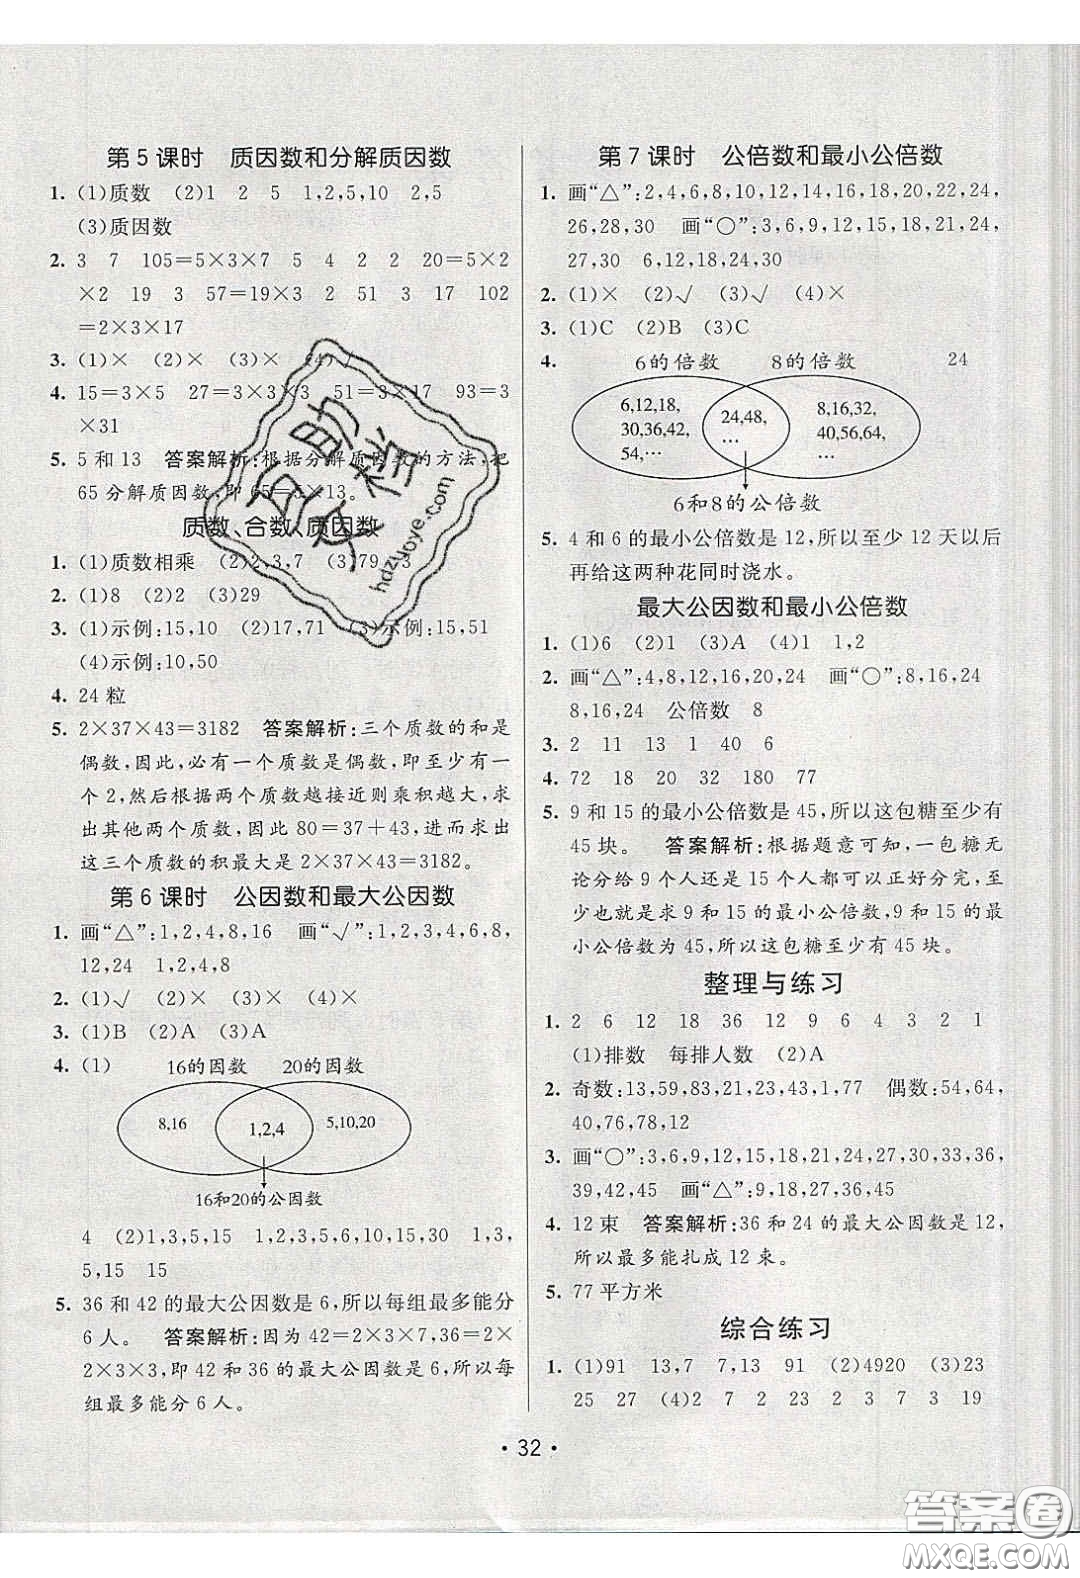 第5课时 质因数和分解质因数
1. (1)质数 (2)1 2 5 1,2,5,10 2,5
(3)质因数
2. 3 7 105=5×3×7 5 4 2 2 20=5×2
×2 19 3 57=19×3 2 51 3 17 102
=2×3×17
3. (1)× (2)× (3)× (4)√
4. 15=3×5 27=3×3×3 51=3×17 93=3
×31
5. 5和13 答案解析:根据分解质因数的方法,把
65分解质因数,即65=5×13。
质数、合数、质因数
1. (1)质数相乘 (2)2,3,7 (3)79 3
2. (1)8 (2)2 (3)29
3. (1)示例:15,10 (2)17,71 (3)示例:15,51
(4)示例:10,50
4. 24粒
5. 2×37×43=3182 答案解析:三个质数的和是
偶数,因此,必有一个质数是偶数,即至少有一
个2,然后根据两个质数越接近则乘积越大,求
出其他两个质数,因此80=37+43,进而求出
这三个质数的积最大是2×37×43=3182。
第6课时 公因数和最大公因数
1. 画“△”:1,2,4,8,16 画“√”:1,2,3,4,6,8,
12,24 1,2,4,8
2. (1)√ (2)× (3)× (4)×
3. (1)B (2)A (3)A
4. (1) 16的因数 20的因数
8,16 1,2,4 5,10,20
16和20的公因数
4 (2)1,3,5,15 1,2,3,5,6,10,15,30 1,3,
5,15 15
5. 36和42的最大公因数是6,所以每组最多能分
6人。 答案解析:因为42=2×3×7,36=2×
2×3×3,即42和36的最大公因数是6,所以每
组最多能分6人。
第7课时 公倍数和最小公倍数
1. 画“△”:2,4,6,8,10,12,14,16,18,20,22,24,
26,28,30 画“○”:3,6,9,12,15,18,21,24,
27,30 6,12,18,24,30
2. (1)× (2)√ (3)√ (4)×
3. (1)C (2)B (3)C
4. 6的倍数 8的倍数 24
6,12,18, 24,48, 8,16,32,
30,36,42, … 40,56,64,
54,… …
6和8的公倍数
5. 4和6的最小公倍数是12,所以至少12天以后
再给这两种花同时浇水。
最大公因数和最小公倍数
1. (1)6 (2)1 (3)A (4)1 1,2
2. 画“△”:4,8,12,16,20,24 画“○”:8,16,24
8,16,24 公倍数 8
3. 2 11 13 1 40 6
4. 72 18 20 32 180 77
5. 9和15的最小公倍数是45,所以这包糖至少有
45块。 答案解析:根据题意可知,一包糖无
论分给9个人还是15个人都可以正好分完,至
少也就是求9和15的最小公倍数,9和15的最
小公倍数为45,所以这包糖至少有45块。
整理与练习
1. 2 6 12 18 36 12 9 6 4 3 2 1
(1)排数 每排人数 (2)A
2. 奇数:13,59,83,21,23,43,1,77 偶数:54,64,
40,76,78,12
3. 画“○”:3,6,9,15,18,21,24,27,30,33,36,
39,42,45 画“△”:9,18,27,36,45
4. 12束 答案解析:36和24的最大公因数是12,
所以最多能扎成12束。
5. 77平方米
综合练习
1. (1)91 13,7 7,13 91 (2)4920 (3)23
25 27 (4)2 7 2 23 2 7 3 19
• 32 •
互助文档
hdzuoye.com
答案圈
MXQE.COM